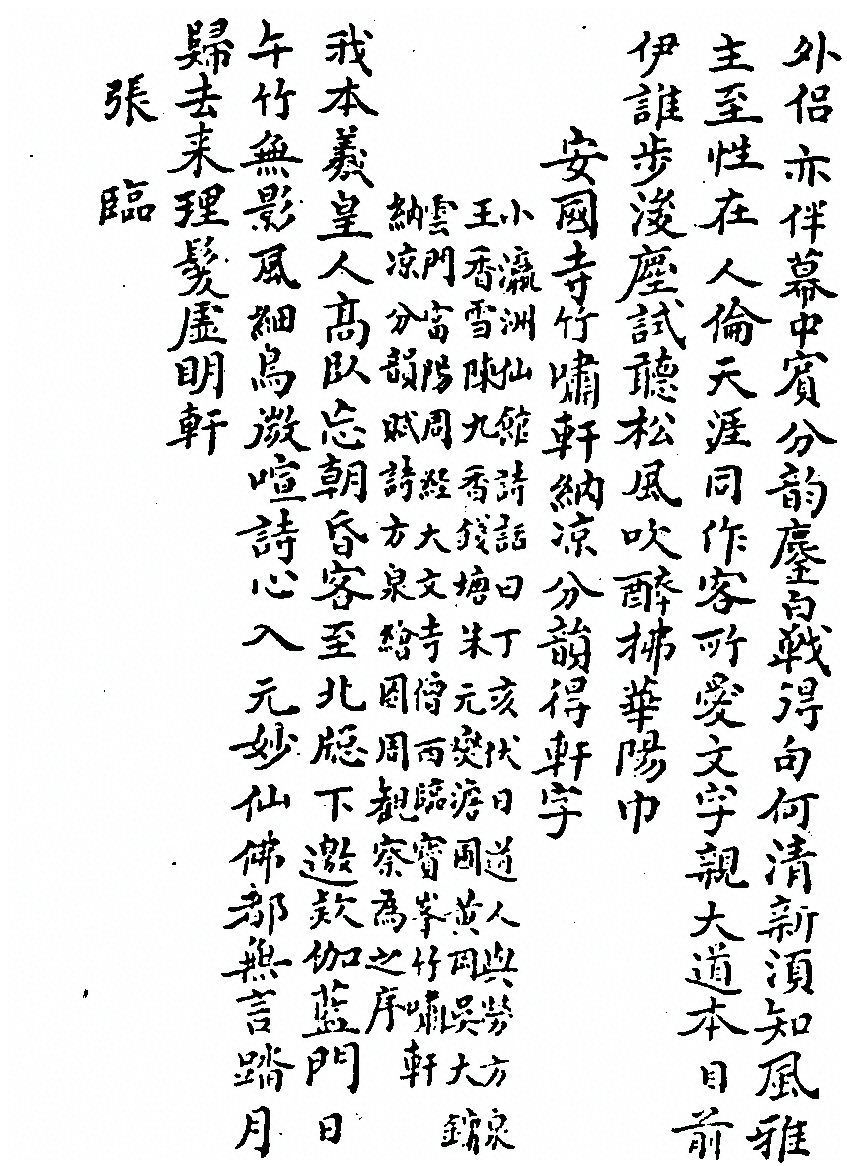 外侶亦伴幕中賓分韵鏖白戰得句何清新須知風雅
主至性在人倫天涯同作客所愛文字親大道本目前
伊誰步後塵試聽松風吹醉拂華陽巾
安國寺竹嘯軒納涼分韻得軒字
小瀛洲仙館詩話曰丁亥伏日道人與勞方泉
王香雪陳九香錢塘朱元燮澹圃黃岡吳大鏞
雲門富陽周經大文寺僧雨臨寶峯竹嘯軒
納凉分韻賦詩方泉繪圖周觀察為之序
我本羲皇人高臥忘朝昏客至北牕下邀欵伽藍門日
午竹無影風細鳥微喧詩心入元妙仙佛都無言踏月
歸去来理髮虛明軒
張臨